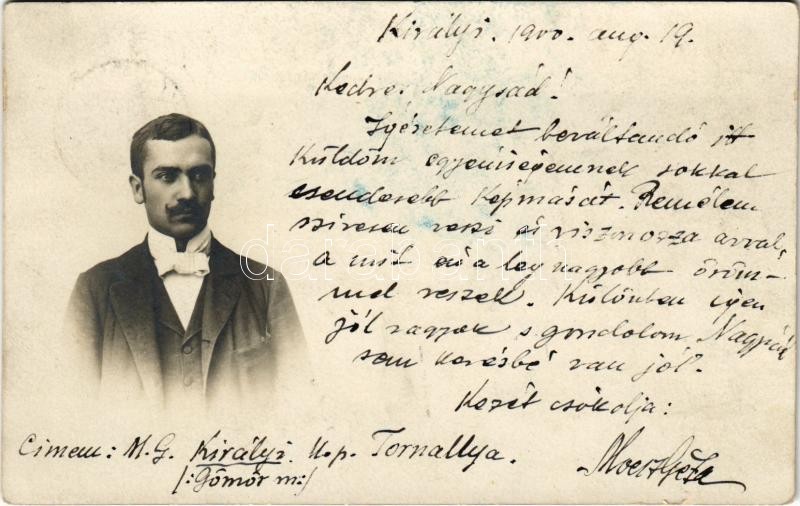 Királyi. 1900. aug. 19.
Kedves Nagysád!
Igéretemet beváltandó itt
küldöm egyéniségemnek sokkal
csendesebb képmását. Remélem
szivesen veszi és viszonozza avval,
a mit én a leg nagyobb öröm-
mel veszek. Különben igen
jól vagyok s gondolom, Nagysád
sem kevésbé van jól.
Kezét csókolja:
Cimem: M. G. Királyi. U. p. Tornallya.
(: Gömör m :)
Géza